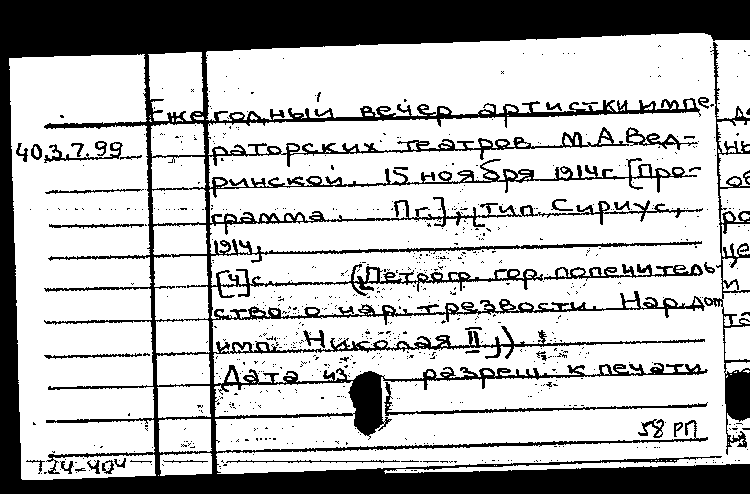 Ежегодный вечер артистки импе-
40.3.7.99
раторских театров М.А. Вед-
ринской. 15 ноября 1914г. [Про-
грамма. Пг.], [тип. Сириус,
1914].
[4]с. (Петрогр. гор. попечитель-
ство о нар. трезвости. Нар. дом
имп. Николая II).
Дата из разреш. к печати
58 РП
124-404